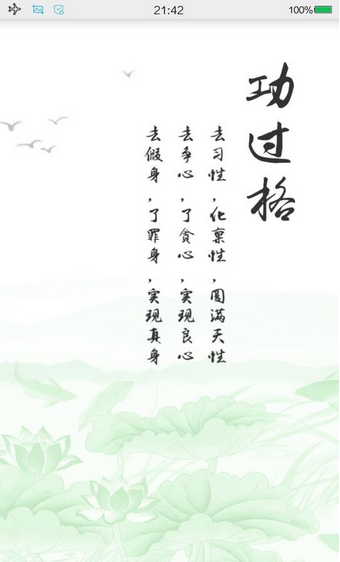 21:42
100%
功过格
去习性,化禀性,圆满天性
去争心,了贪心,实现良心
去假身,了罪身,实现真身